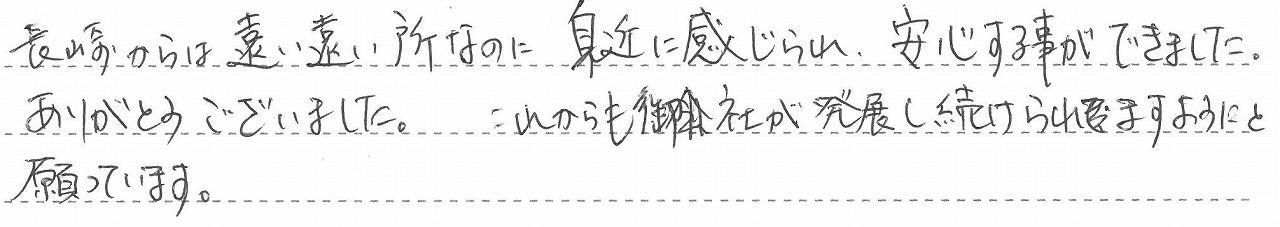 長崎からは遠い遠い所なのに身近に感じられ、安心する事ができました。
ありがとうございました。 これからも御社が発展し続けられますようにと
願っています。